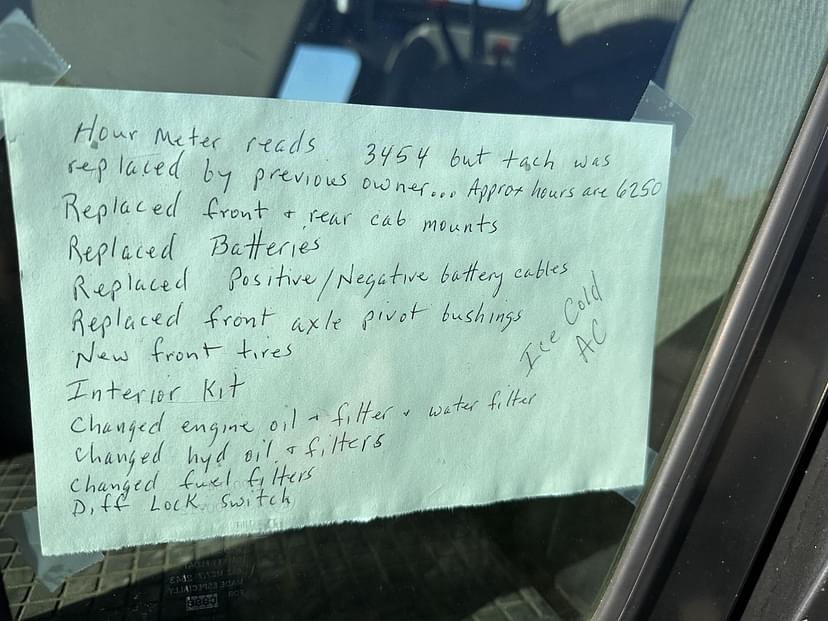 Hour Meter reads 3454 but tach was
replaced by previous owner... Approx hours are 6250
Replaced front + rear cab mounts
Replaced Batteries
Replaced Positive/Negative battery cables
Replaced front axle pivot bushings
New front tires
Ice Cold
AC
Interior Kit
Changed engine oil + filter + water filter
Changed hyd oil + filters
Changed fuel filters
Diff Lock Switch
MADE ESPECIALLY
FOR